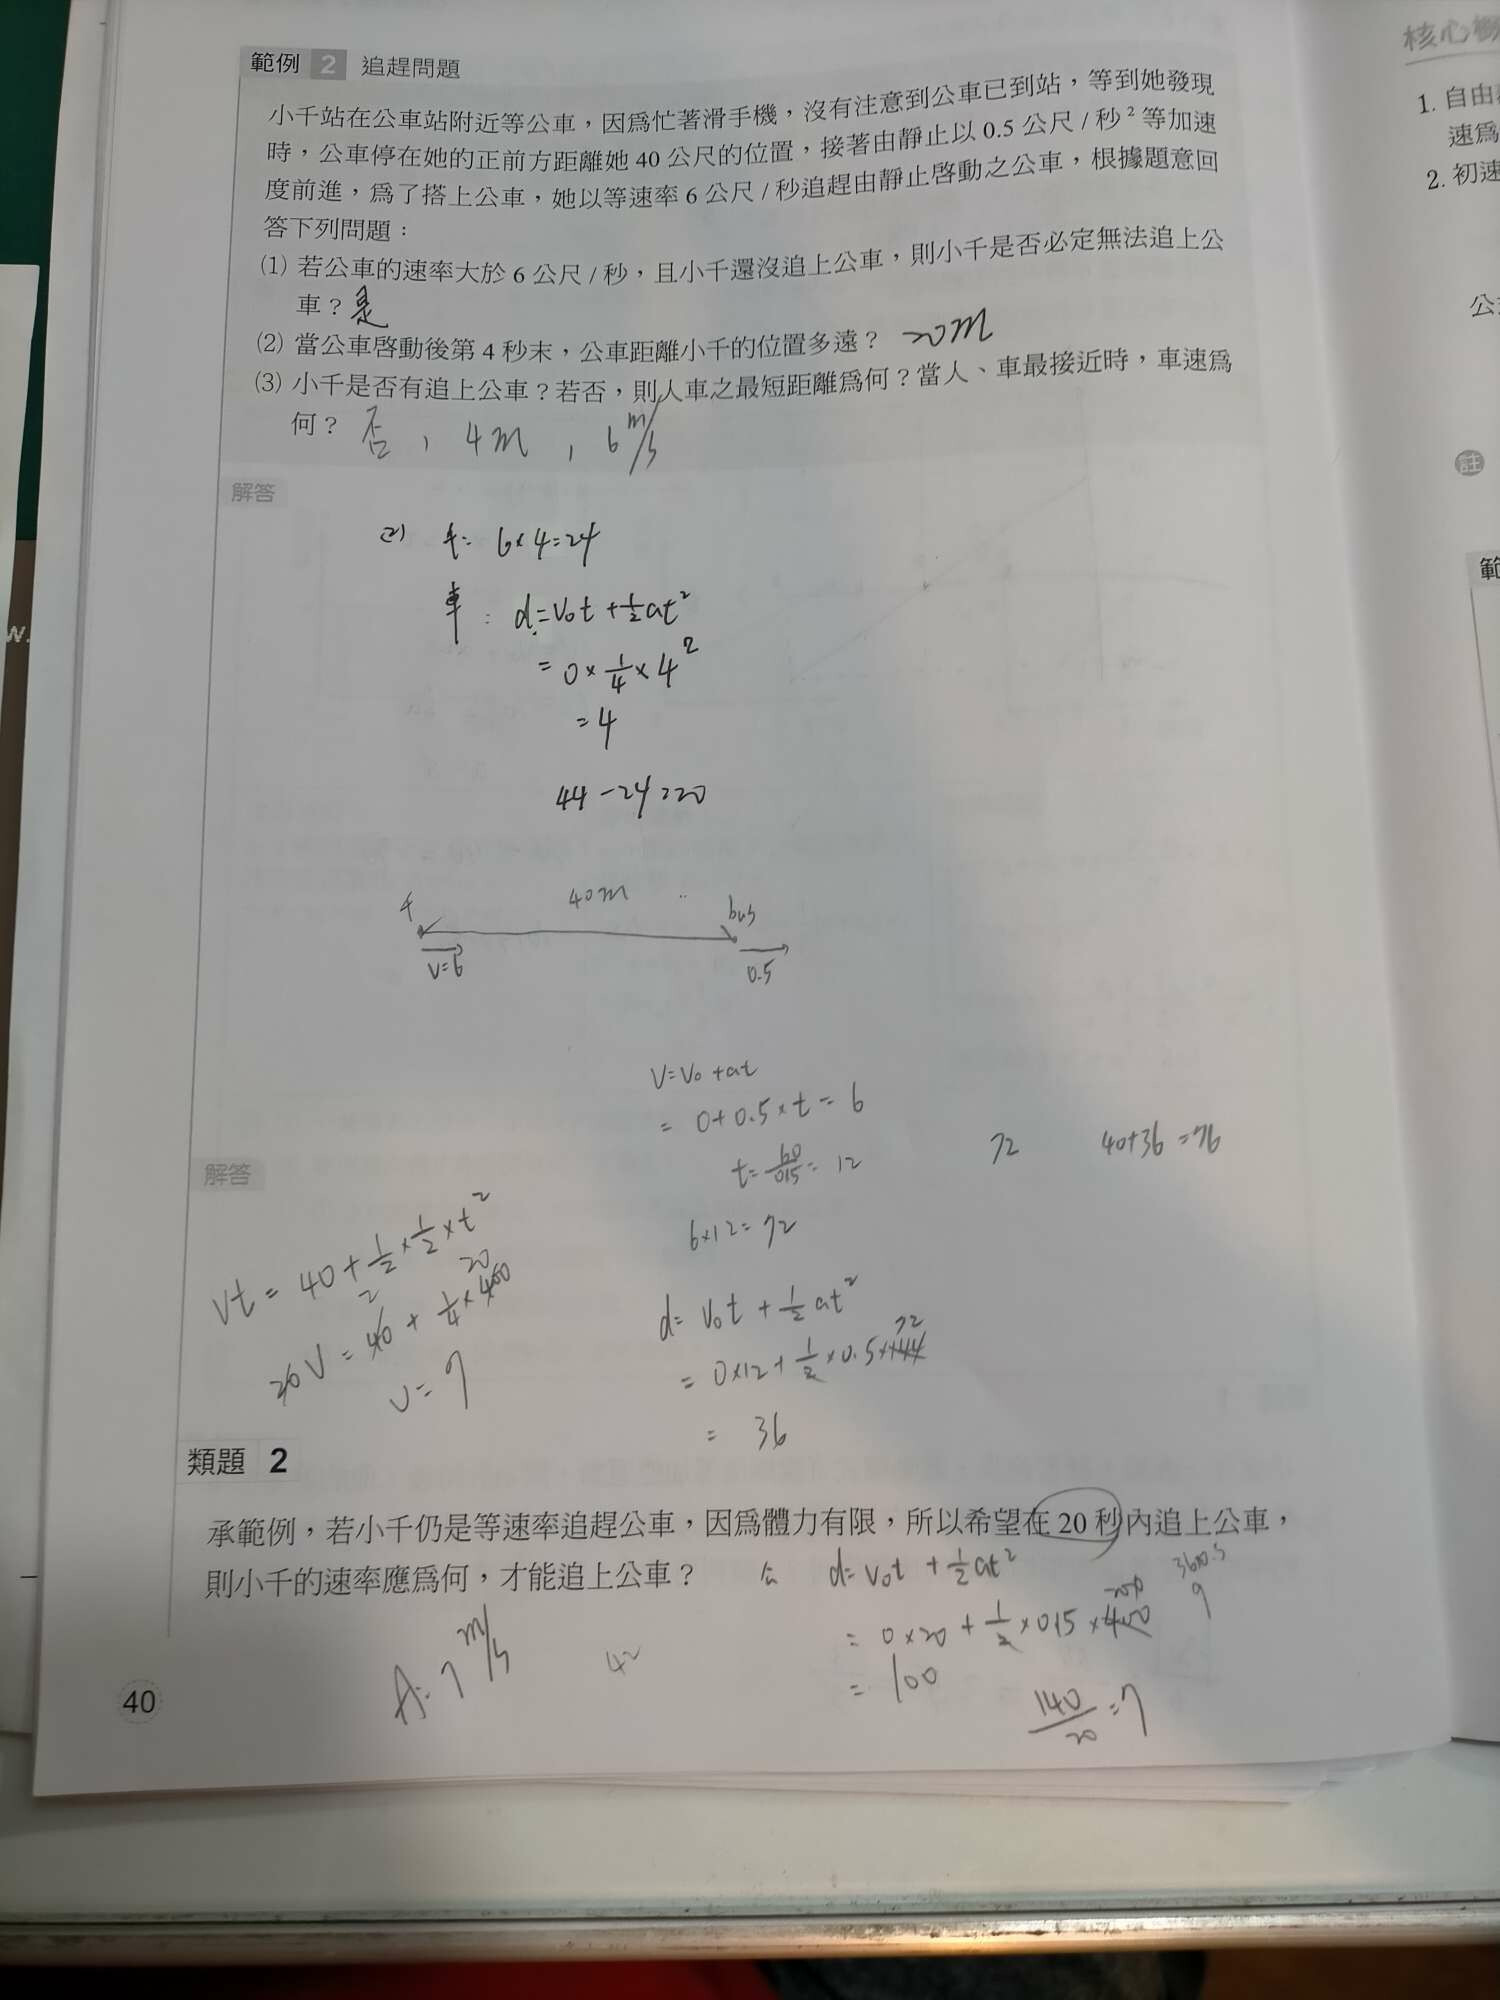 範例 2 追趕問題
小千站在公車站附近等公車，因為忙著滑手機，沒有注意到公車已到站，等到她發現
時，公車停在她的正前方距離她 40 公尺的位置，接著由靜止以 0.5 公尺 / 秒² 等加速
度前進，為了搭上公車，她以等速率 6 公尺 / 秒追趕由靜止啓動之公車，根據題意回
答下列問題：
(1) 若公車的速率大於 6 公尺 / 秒，且小千還沒追上公車，則小千是否必定無法追上公
車？是
(2) 當公車啓動後第 4 秒末，公車距離小千的位置多遠？ 20m
(3) 小千是否有追上公車？若否，則人車之最短距離為何？當人、車最接近時，車速為
何？ 否，4m，6 m/s
解答
(2) 千: 6×4=24
車 : d=V₀t+½at²
= 0×¼×4²
=4
44-24=20
千 40m bus
V=6 0.5
V=V₀+at
= 0+0.5×t=6
t=60/0.5=12
72 40+36=76
解答
6×12=72
Vt=40+½×½×t²
20V=40+¼×400
2 20
V=7
d=V₀t+½at²
72
=0×12+½×0.5×144
= 36
類題 2
承範例，若小千仍是等速率追趕公車，因為體力有限，所以希望在 20 秒內追上公車，
則小千的速率應為何，才能追上公車？
公 d=V₀t+½at²
= 0×20+½×0.5×400
200
= 100
A: 7 m/s
42
36×0.5
9
140/20=7
40
核心概
1. 自由
速為
2. 初速
公
註
範
w.